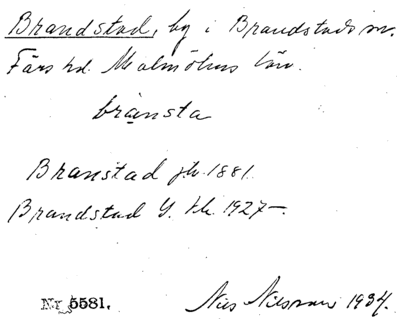 Brandstad, by i Brandstads sn.
Färs hd. Malmöhus län.
bränsta
Branstad jb. 1881.
Brandstad G. kk. 1927–.
Nr 5581.
Nils Nilsson 1934.